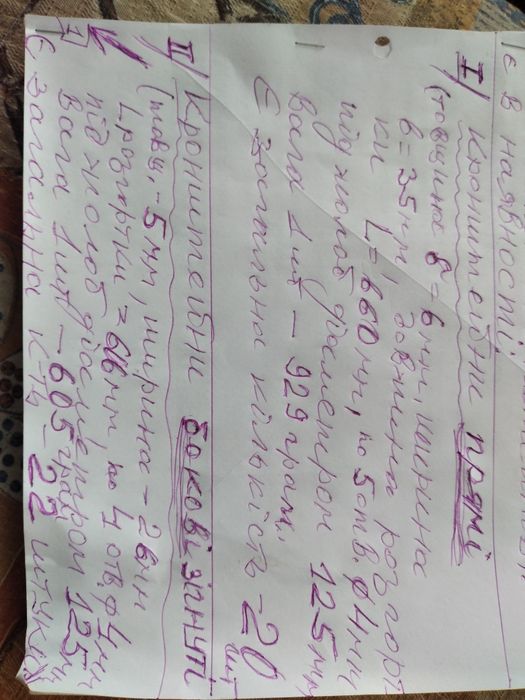 Є в наявності:
I/ Кронштейни прямі
(товщина δ = 6 мм, ширина
b = 35 мм, довжина розгорт-
ки L = 660 мм, по 5 отв. ϕ 4 мм
під жолоб діаметром 125 мм
вага 1 шт – 929 грам.
Є загальна кількість – 20 шт
II/ Кронштейни бокові зігнуті
(товщ. – 5 мм, ширина – 26 мм
L розгортки = 616 мм, по 4 отв. ϕ 4 мм
під жолоб діаметром 125 мм
вага 1 шт – 605 грам
Є загальна к-ть – 22 штуки